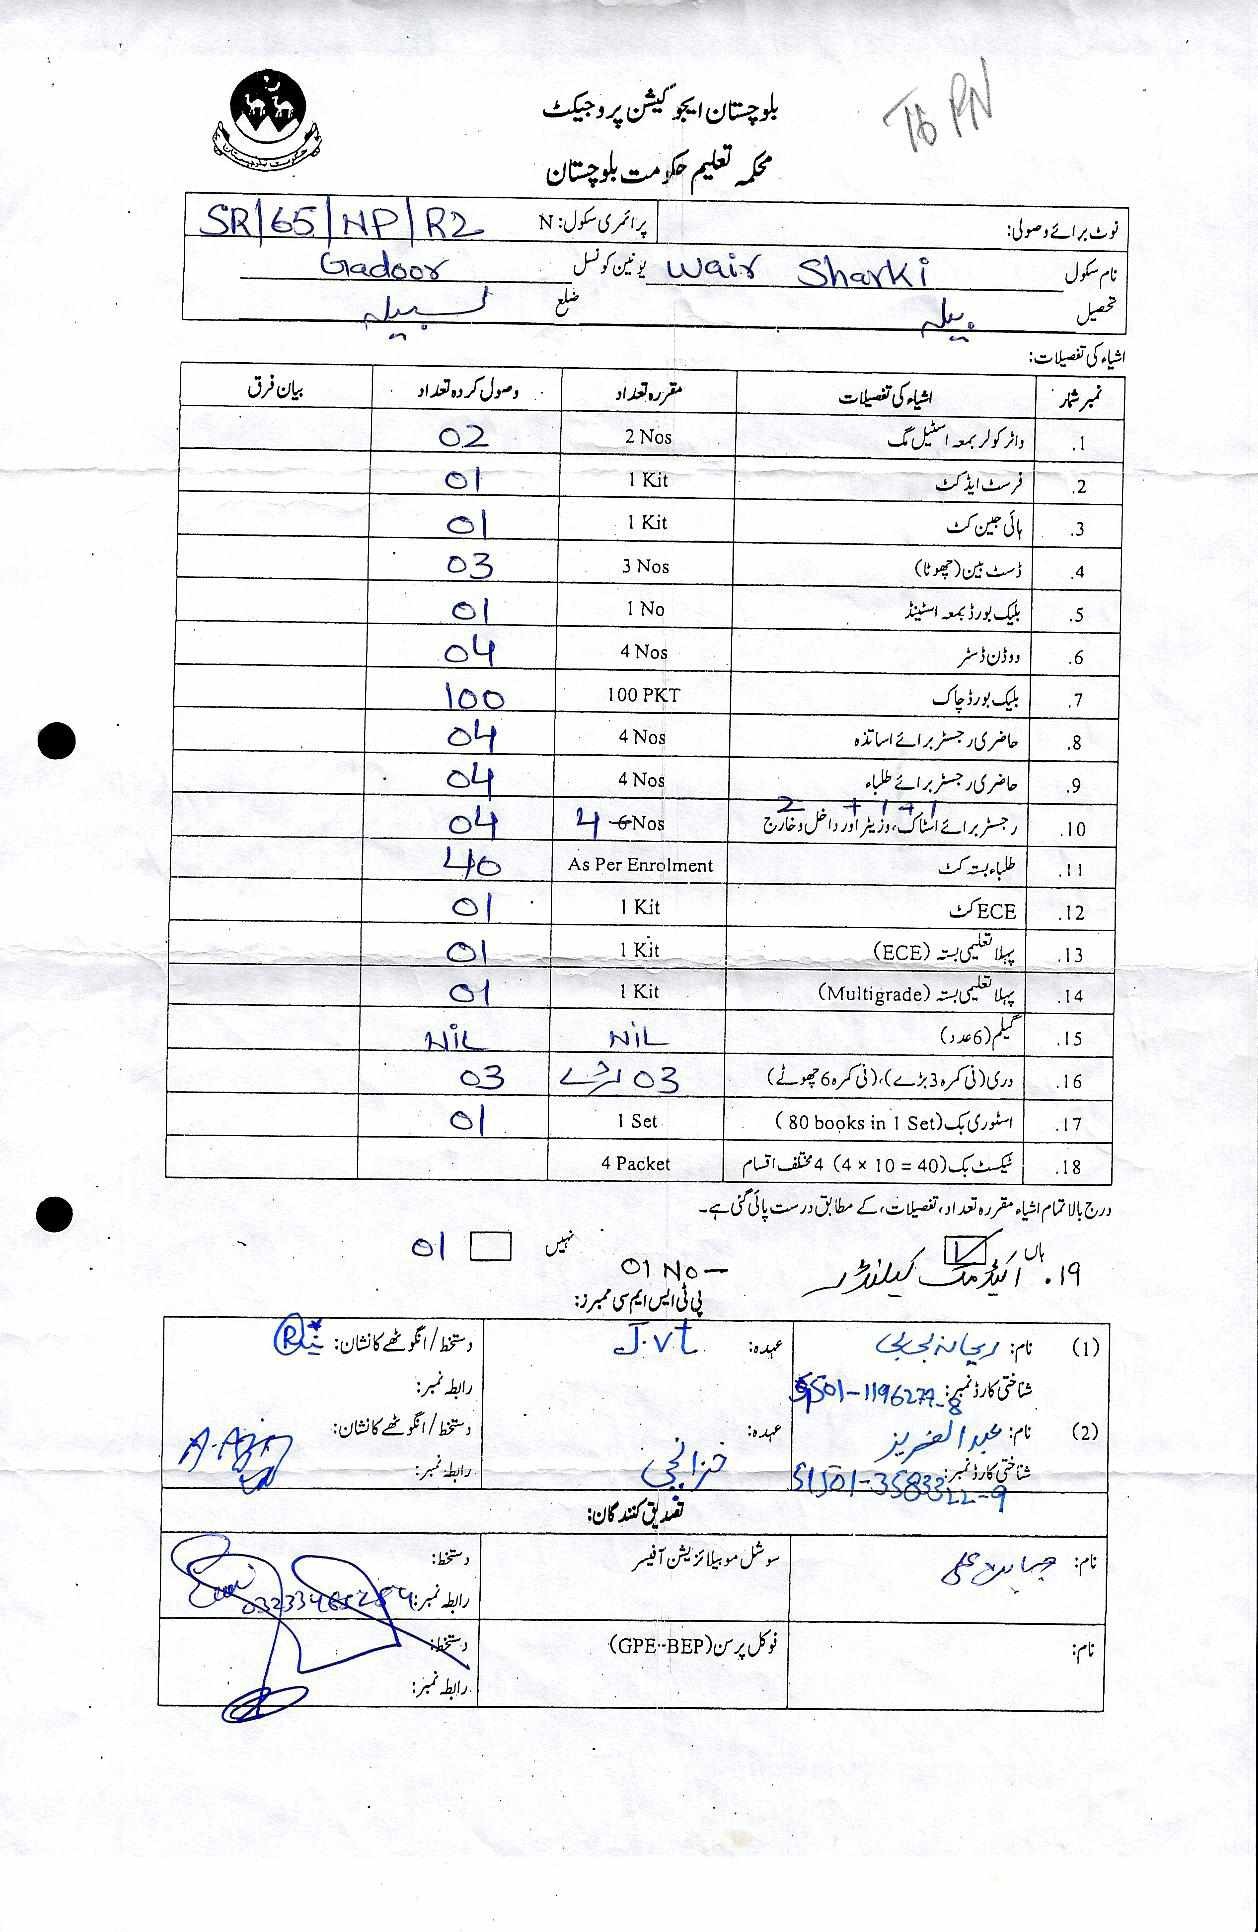 To PN
بلوچستان ایجوکیشن پروجیکٹ
محکمہ تعلیم حکومت بلوچستان
نوٹ برائے وصولی: پرائمری سکول: N SR/65/NP/R2
نام سکول Wair Sharki یونین کونسل Gadoor
تحصیل بیلہ ضلع لسبیلہ
اشیاء کی تفصیلات:
نمبر شمار اشیاء کی تفصیلات مقررہ تعداد وصول کردہ تعداد بیان فرق
1. واٹر کولر بمعہ اسٹیل مگ 2 Nos 02
2. فرسٹ ایڈ کٹ 1 Kit 01
3. ہائی جین کٹ 1 Kit 01
4. ڈسٹ بین (چھوٹا) 3 Nos 03
5. بلیک بورڈ بمعہ اسٹینڈ 1 No 01
6. ووڈن ڈسٹر 4 Nos 04
7. بلیک بورڈ چاک 100 PKT 100
8. حاضری رجسٹر برائے اساتذہ 4 Nos 04
9. حاضری رجسٹر برائے طلباء 4 Nos 04
2 + 1 + 1
10. رجسٹر برائے اسٹاک، وزیٹر اور داخل و خارج 4 6 Nos 04
11. طلباء بستہ کٹ As Per Enrolment 40
12. ECE کٹ 1 Kit 01
13. پہلا تعلیمی بستہ (ECE) 1 Kit 01
14. پہلا تعلیمی بستہ (Multigrade) 1 Kit 01
15. گیلم (6 عدد) NiL NiL
16. دری (فی کمرہ 3 بڑے)، (فی کمرہ 6 چھوٹے) 03 03
17. اسٹوری بک (80 books in 1 Set) 1 Set 01
18. ٹیکسٹ بک (4 × 10 = 40) 4 مختلف اقسام 4 Packet
درج بالا تمام اشیاء مقررہ تعداد، تفصیلات، کے مطابق درست پائی گئی ہے۔
ہاں نہیں
۱۹. اکیڈمک کیلنڈر 01 No — 01
پی ٹی ایس ایم سی ممبرز:
(1) نام: ریحانہ بی بی عہدہ: J.v.t دستخط / انگوٹھے کا نشان:
شناختی کارڈ نمبر: رابطہ نمبر:
(2) نام: عبدالعزیز عہدہ: خزانچی دستخط / انگوٹھے کا نشان: A.Aziz
شناختی کارڈ نمبر: 51501-3583322-9 رابطہ نمبر:
تصدیق کنندگان:
نام: سوشل موبیلائزیشن آفیسر دستخط:
رابطہ نمبر:
نام: فوکل پرسن (GPE-BEP) دستخط:
رابطہ نمبر: